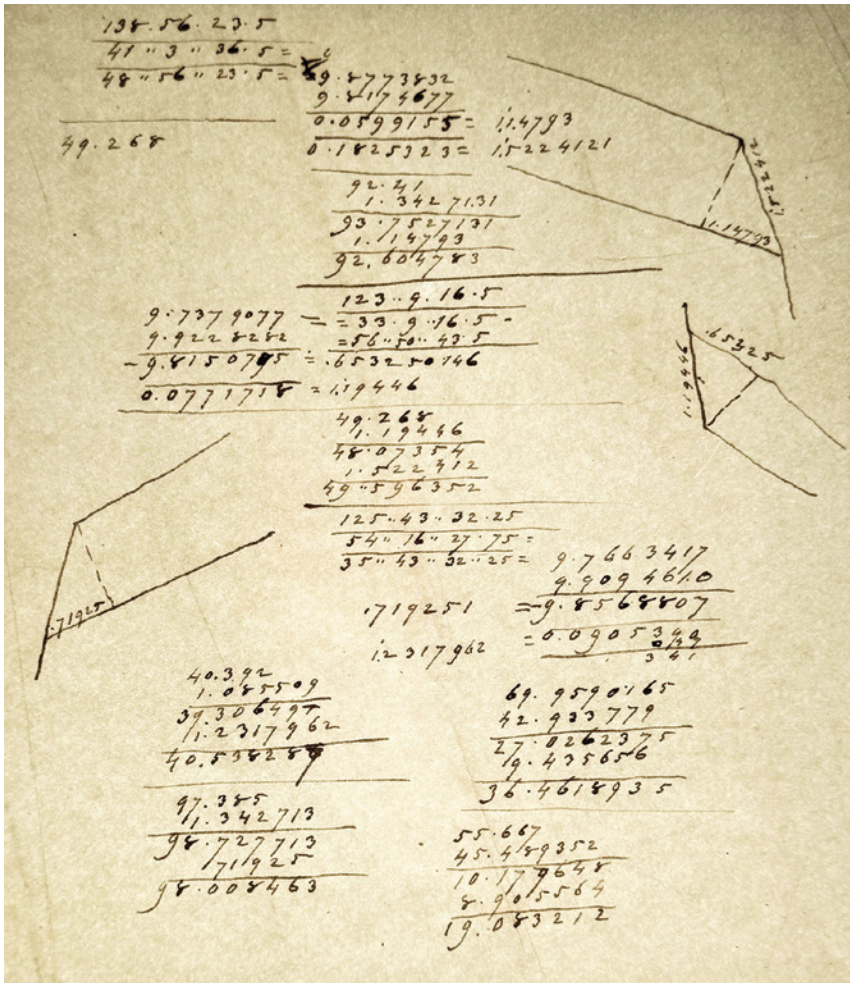 138.56.23.5
41 " 3 " 36.5 =
48 " 56 " 23.5 = 9.8773832
9.8174677
0.0599155 = 1.14793
0.1825323 = 1.5224121
49.268
92.41
1.3427131
93.7527131
1.14793
92.604783
1.522412
1.14793
123..9.16.5
9.7379077 = = 33.9.16.5 -
9.9228282 = 56..50..43.5
- 9.8150795 = .653250746
0.0771718 = 1.19446
.65325
1.19446
49.268
1.19446
48.07354
1.522412
49.596352
125..43..32.25
54 " 16 " 27.75 =
35 " 43 " 32 " 25 = 9.7663417
9.9094610
.719251 = -9.8568807
1.2317962 = 0.0905390
341
.71925
40.392
1.085509
39.306491
1.2317962
40.538289
69.9590165
42.933779
27.0262375
9.435656
36.4618935
97.385
1.342713
98.727713
71925
98.008463
55.667
45.489352
10.179648
8.905564
19.083212